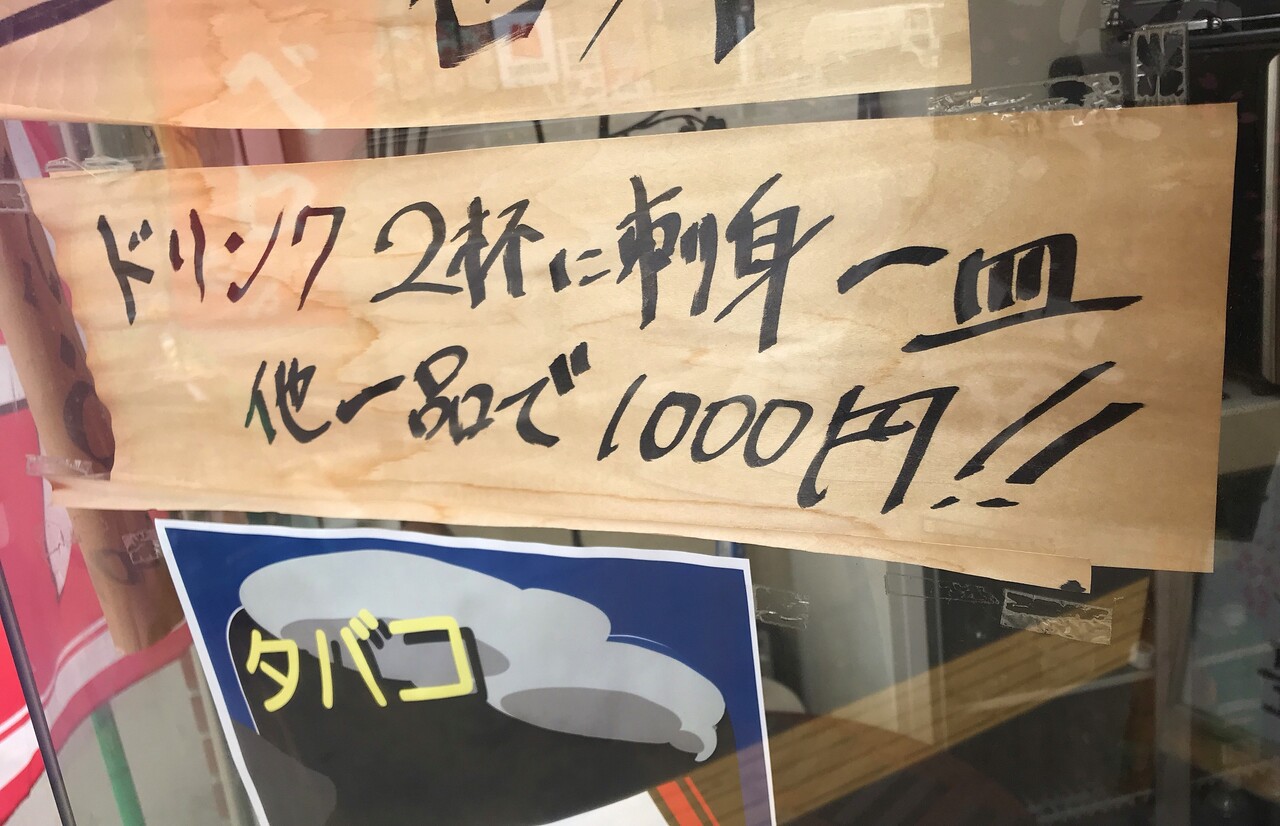 ドリンク2杯に刺身一皿
他一品で1000円!!
タバコ